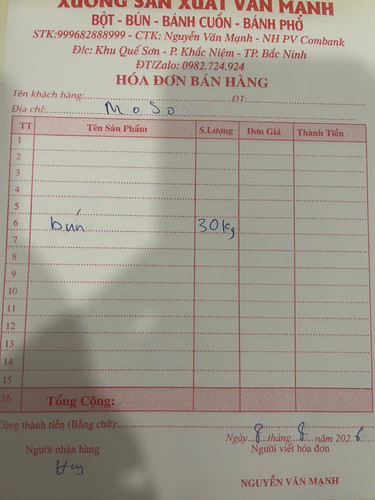 XƯỞNG SẢN XUẤT VĂN MẠNH
BỘT - BÚN - BÁNH CUỐN - BÁNH PHỞ
STK:999682888999 - CTK: Nguyễn Văn Mạnh - NH PV Combank
Đ/c: Khu Quế Sơn - P. Khắc Niệm - TP. Bắc Ninh
ĐT/Zalo: 0982.724.924
HÓA ĐƠN BÁN HÀNG
Tên khách hàng: ĐT:
Địa chỉ: MoSo
TT Tên Sản Phẩm S.Lượng Đơn Giá Thành Tiền
1
2
3
4
5
6 bún 30kg
7
8
9
10
11
12
13
14
15
16 Tổng Cộng:
Cộng thành tiền (Bằng chữ):
Ngày 8 tháng 8 năm 2026
Người nhận hàng Người viết hóa đơn
Huy
NGUYỄN VĂN MẠNH